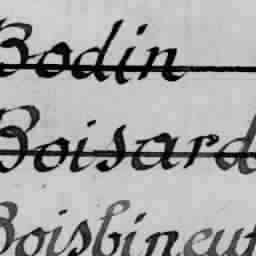 Bodin
Boisard
Boisbineuf